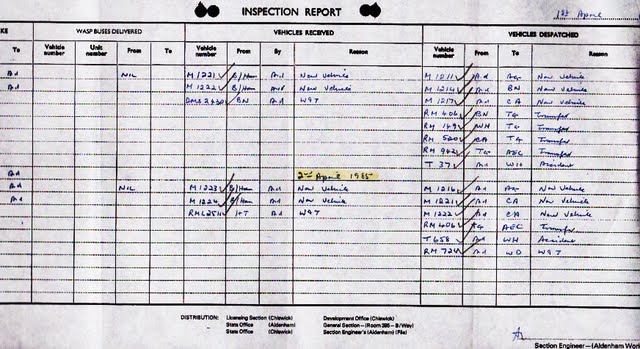 INSPECTION REPORT
1st April
KE WASP BUSES DELIVERED VEHICLES RECEIVED VEHICLES DESPATCHED
To Vehicle number Unit number From To Vehicle number From By Reason Vehicle number From To Reason
Ad NIL M1221 B/Ham Ad New Vehicle M1211 Ad New Vehicle
Ad M1222 B/Ham Ad New Vehicle M1214 Ad BN New Vehicle
BN Ad W97 M1217 Ad CA New Vehicle
RM 406 BN TG Transfer
RM 149 WH TG Transfer
RM 520 CA TG Transfer
RM 942 TG AEC Transfer
T 37 Ad WH Accident
Ad 2nd April 1985
Ad NIL M1223 B/Ham Ad New Vehicle M1216 Ad New Vehicle
Ad M1224 B/Ham Ad New Vehicle M1221 Ad CA New Vehicle
RML2511 HT Ad W97 M1222 Ad CA New Vehicle
RM 406 TG AEC Transfer
T 658 Ad WH Accident
RM 724 Ad WD W97
DISTRIBUTION: Licensing Section (Chiswick) Development Office (Chiswick)
State Office (Aldenham) General Section—(Room 395 – B/Way)
State Office (Chiswick) Section Engineer's (Aldenham) (File)
Section Engineer—(Aldenham Work